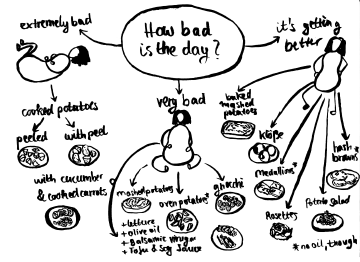 extremely bad
How bad
is the day?
it's getting
better
cooked potatoes
peeled
with peel
with cucumber
& cooked carrots
very bad
mashed potatoes
+ lettuce
+ olive oil
+ Balsamic vinegar
+ Tofu & Soy Sauce
oven potatoes*
gnocchi
baked
mashed
potatoes
Klöße
medallions*
Rosettes
Potato Salad
hash
browns*
* no oil, though